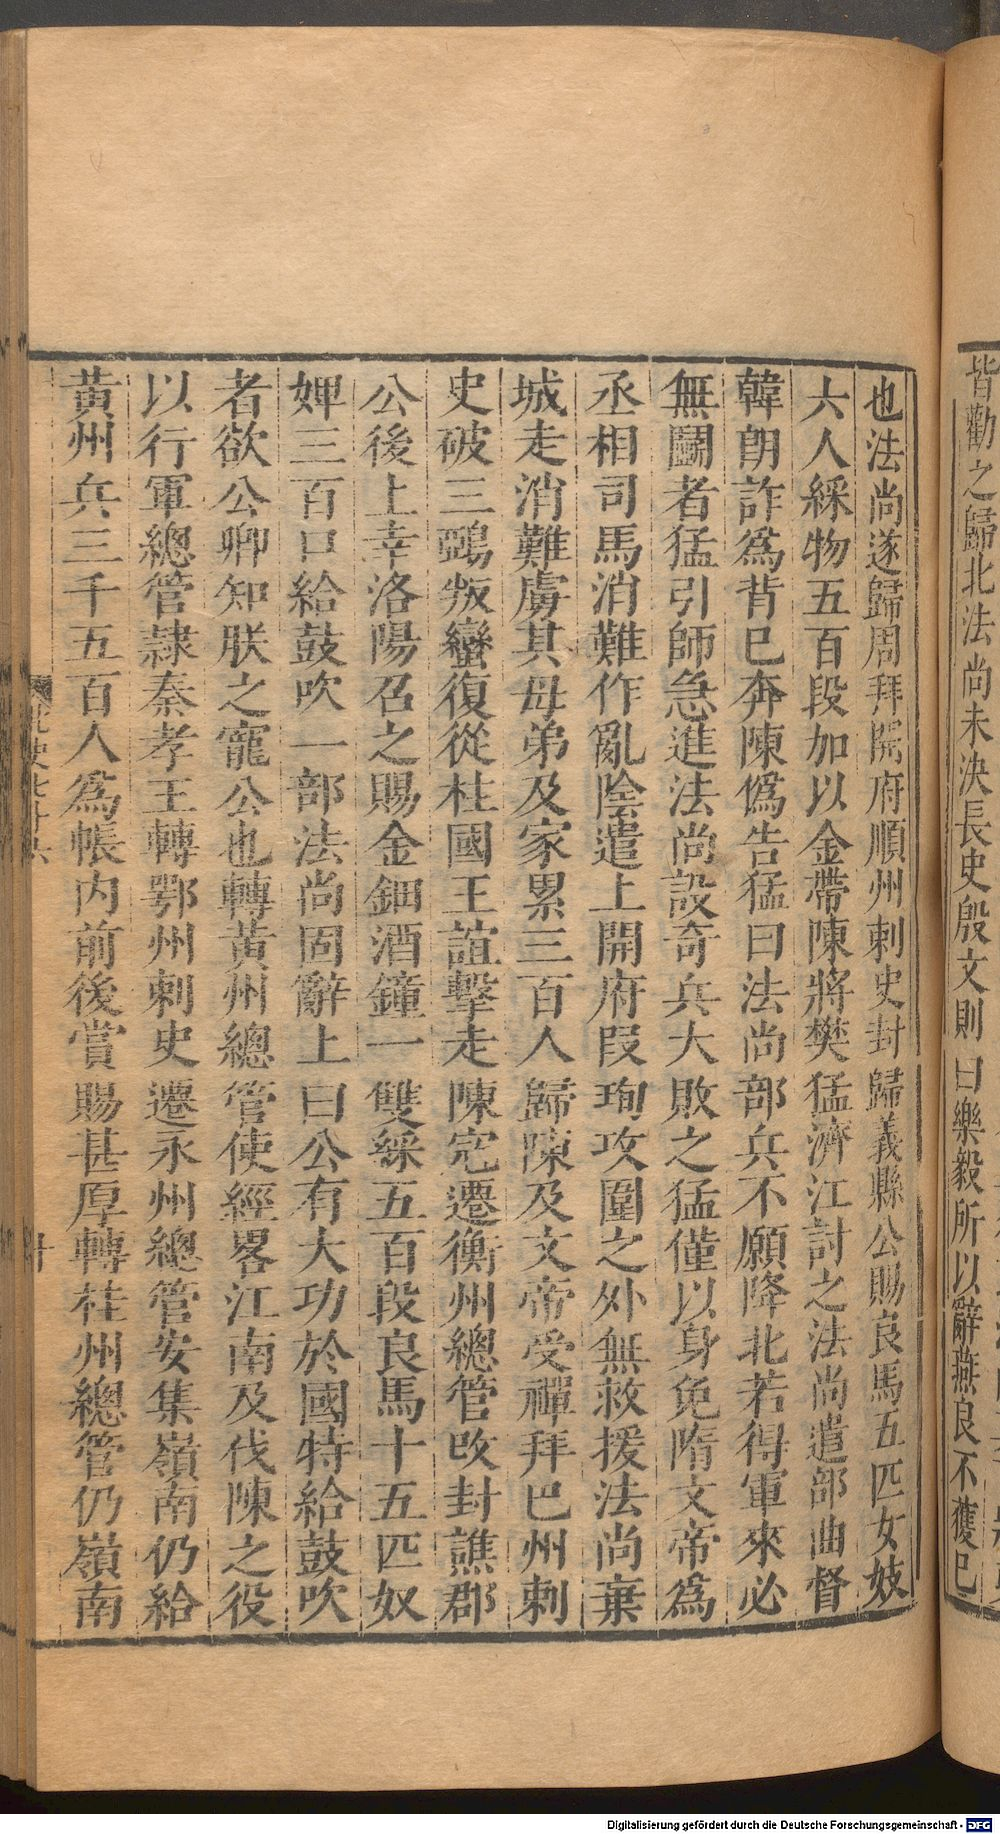 皆勸之歸北法尚未決長史殷文則曰樂毅所以辭燕良不獲已
也法尚遂歸周拜開府順州刺史封歸義縣公賜良馬五匹女妓
六人綵物五百段加以金帶陳將樊猛濟江討之法尚遣部曲督
韓朗詐爲背已奔陳僞告猛曰法尚部兵不願降北若得軍來必
無鬭者猛引師急進法尚設奇兵大敗之猛僅以身免隋文帝爲
丞相司馬消難作亂陰遣上開府叚珣攻圍之外無救援法尚棄
城走消難虜其母弟及家累三百人歸陳及文帝受禪拜巴州刺
史破三鵶叛蠻復從柱國王誼擊走陳寇遷衡州總管改封譙郡
公後上幸洛陽召之賜金鈿酒鐘一雙綵五百段良馬十五匹奴
婢三百口給鼓吹一部法尚固辭上曰公有大功於國特給鼓吹
者欲公卿知朕之寵公也轉黄州總管使經畧江南及伐陳之役
以行軍總管隷秦孝王轉鄂州刺史遷永州總管安集嶺南仍給
黄州兵三千五百人爲帳内前後賞賜甚厚轉桂州總管仍嶺南
Digitalisierung gefördert durch die Deutsche Forschungsgemeinschaft - DFG